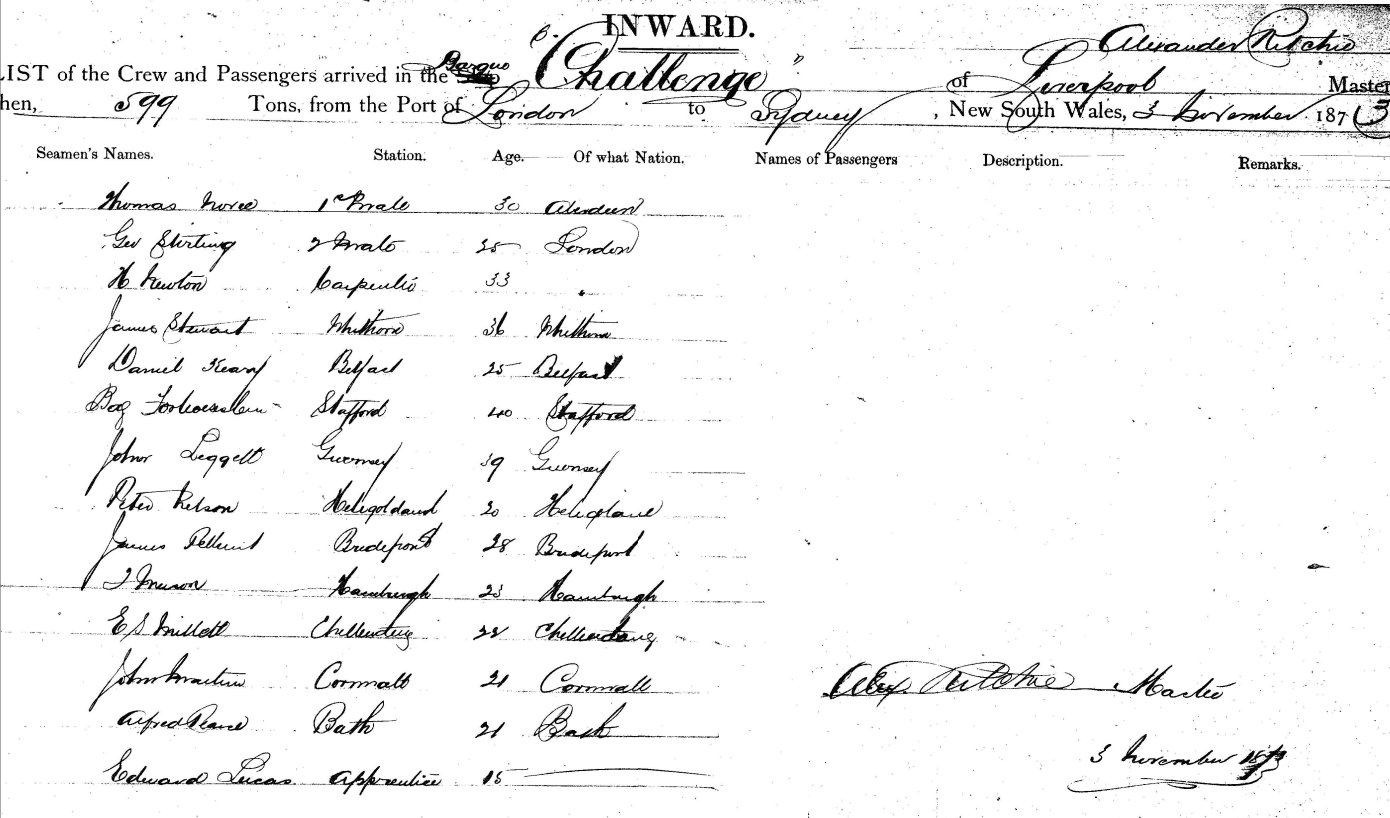 INWARD.
Alexander Ritchie
LIST of the Crew and Passengers arrived in the Barque B. Challenge " of Liverpool Master
hen, 599 Tons, from the Port of London to Sydney, New South Wales, 3 November 1873
Seamen's Names. Station. Age. Of what Nation. Names of Passengers Description. Remarks.
Thomas 1st Mate 30 Aberdeen
Geo Stirling 2 Mate 25 London
H Newton Carpenter 33 "
James Stewart Whithorn 36 Whithorn
Daniel Belfast 25 Belfast
Stafford 40 Stafford
John Leggett Guernsey 39 Guernsey
Peter Nelson Heligoldand 20 Heligland
James Brideport 28 Brideport
Hamburgh 23 Hamburgh
E S Millett 22
John Martin Cornwall 21 Cornwall
Alfred Pearce Bath 21 Bath
Edward Lucas Apprentice 15
Alex Ritchie Master
3 November 1873